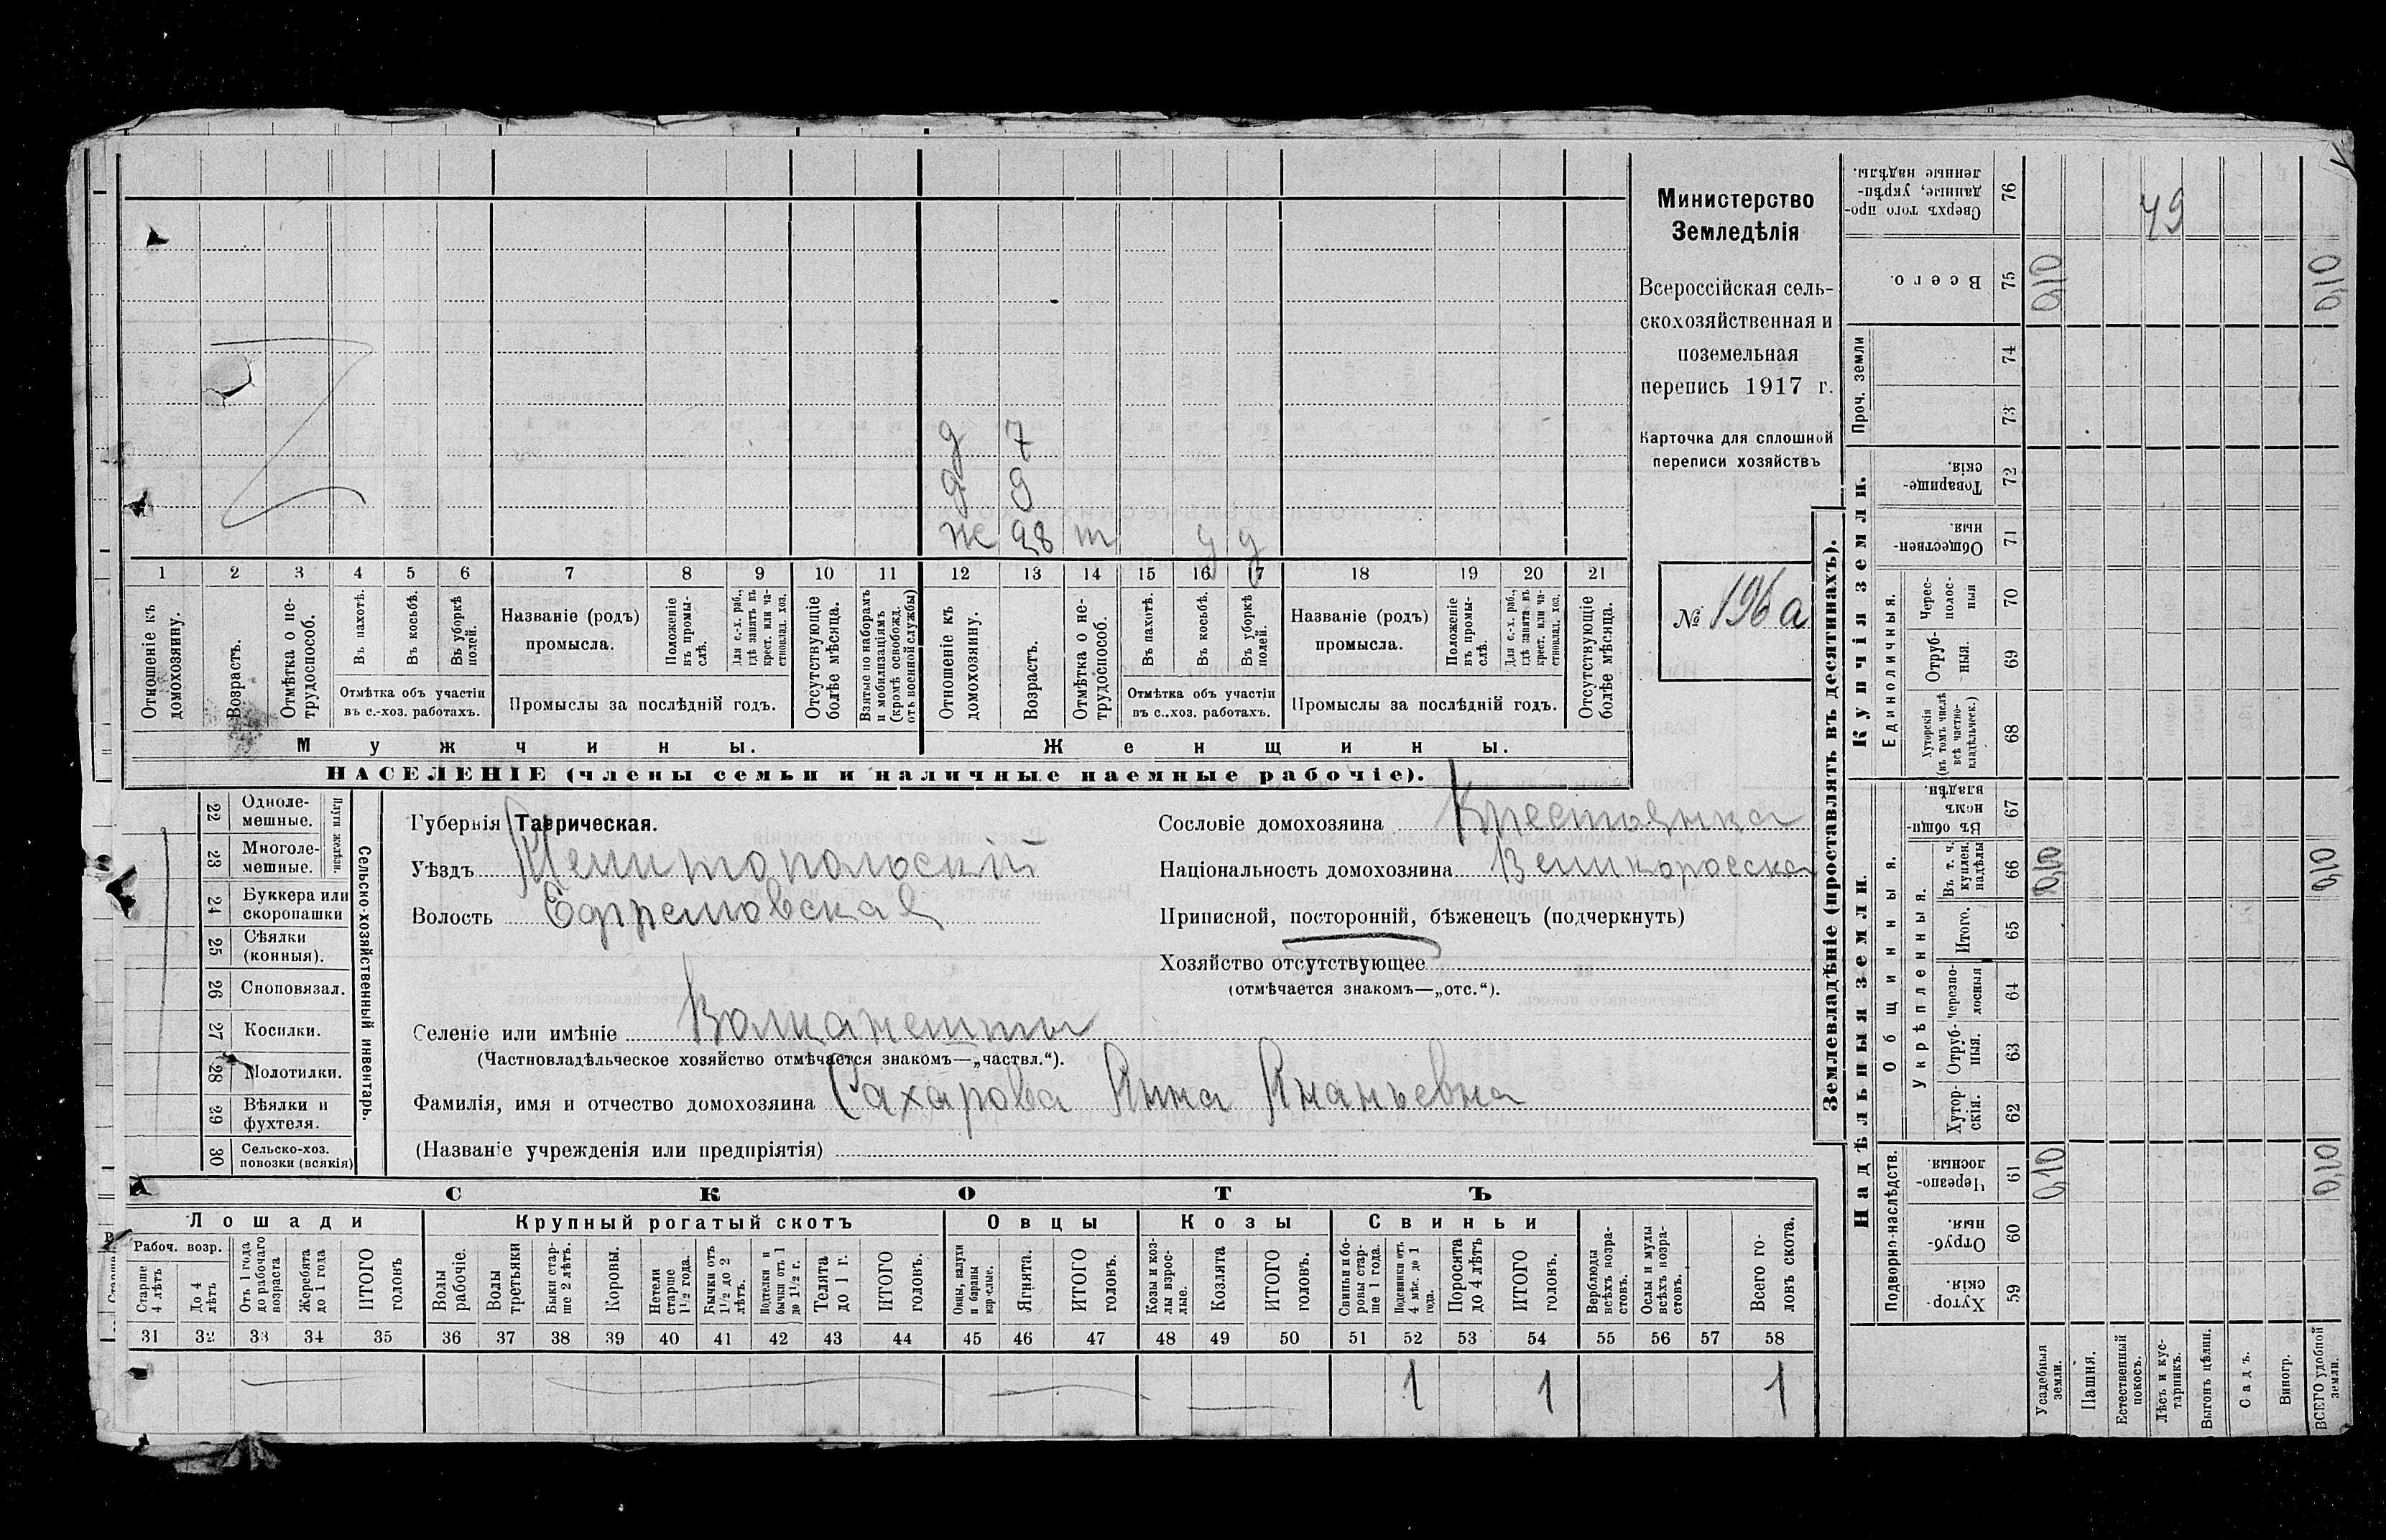 Министерство
Земледѣлія
Всероссійская сель-
скохозяйственная и
поземельная
перепись 1917 г.
Карточка для сплошной
переписи хозяйствъ
№ 196 а
д 7
д 9
ж 28 т у у
1 2 3 4 5 6 7 8 9 10 11 12 13 14 15 16 17 18 19 20 21
Отношеніе къ домохозяину.
Возрастъ.
Отмѣтка о не-трудоспособ.
Въ пахотѣ.
Въ косьбѣ.
Въ уборкѣ полей.
Отмѣтка объ участіи
въ с.-хоз. работахъ.
Названіе (родъ)
промысла.
Положеніе въ промы-слѣ.
Для с.-х. раб., гдѣ занятъ въ крест. или ча-стновлад. хоз.
Промыслы за послѣдній годъ.
Отсутствующіе болѣе мѣсяца.
Взятые по наборамъ и мобилизаціямъ (кромѣ освобожд. отъ военной службы)
Отношеніе къ домохозяину.
Возрастъ.
Отмѣтка о не-трудоспособ.
Въ пахотѣ.
Въ косьбѣ.
Въ уборкѣ полей.
Отмѣтка объ участіи
въ с.-хоз. работахъ.
Названіе (родъ)
промысла.
Положеніе въ промы-слѣ.
Для с.-х. раб., гдѣ занята въ крест. или ча-стновлад. хоз.
Промыслы за послѣдній годъ.
Отсутствующіе болѣе мѣсяца.
Мужчины. Женщины.
НАСЕЛЕНІЕ (члены семьи и наличные наемные рабочіе).
22 Одноле-мешные.
23 Многоле-мешные.
Плуги желѣзн.
24 Буккера или скоропашки
25 Сѣялки (конныя).
26 Сноповязал.
27 Косилки.
28 Молотилки.
29 Вѣялки и фухтеля.
30 Сельско-хоз. повозки (всякія)
Сельско-хозяйственный инвентарь.
Губернія Таврическая.
Уѣздъ Мелитопольскій
Волость Ефремовская
Сословіе домохозяина Крестьянка
Національность домохозяина Великоросска
Приписной, посторонній, бѣженецъ (подчеркнуть)
Хозяйство отсутствующее
(отмѣчается знакомъ—„отс.“).
Селеніе или имѣніе Волканешты
(Частновладѣльческое хозяйство отмѣчается знакомъ—„частвл.“).
Фамилія, имя и отчество домохозяина Сахарова Анна Ананьевна
(Названіе учрежденія или предпріятія)
СКОТЪ
Лошади Крупный рогатый скотъ Овцы Козы Свиньи
Рабоч. возр.
Старше 4 лѣтъ
До 4 лѣтъ
Отъ 1 года до рабочаго возраста
Жеребята до 1 года
ИТОГО головъ
Волы рабочіе.
Волы третьяки
Быки стар-ше 2 лѣтъ.
Коровы.
Нетели старше 1½ года.
Бычки отъ 1½ до 2 лѣтъ.
Подтелки и бычки отъ 1 до 1½ г.
Телята до 1 г.
ИТОГО головъ.
Овцы, валухи и бараны взр-слые.
Ягнята.
ИТОГО головъ.
Козы и коз-лы взрос-лые.
Козлята
ИТОГО головъ.
Свиньи и бо-ровы стар-ше 1 года.
Подсвинки отъ 4 мѣс. до 1 года.
Поросята до 4 лѣтъ
ИТОГО головъ.
Верблюды всѣхъ возра-стовъ.
Ослы и мулы всѣхъ возра-стовъ.
Всего го-ловъ скота.
31 32 33 34 35 36 37 38 39 40 41 42 43 44 45 46 47 48 49 50 51 52 53 54 55 56 57 58
1 1 1
Землевладѣніе (проставлять въ десятинахъ).
Надѣльныя земли. Купчія земли.
Подворно-наслѣдств.
Общинныя.
Укрѣпленныя.
Единоличныя.
Проч. земли
Сверхъ того про-данные, укрѣп-ленные надѣлы. 76 49
Всего. 75 0,10 0,10
74
73
Товарище-скія. 72
Обществен-ныя. 71
Черес-полос-ныя 70
Отруб-ныя. 69
Хуторскія (въ томъ числѣ всѣ частно-владѣльческ.) 68
Въ общи-номъ владѣн. 67
Въ т. ч. куплен. надѣлы 66 0,10 0,10
Итого. 65
Черезпо-лосныя 64
Отруб-ныя. 63
Хутор-скія. 62
Черезпо-лосныя. 61 0,10 0,10
Отруб-ныя. 60
Хутор-скія. 59
Усадебныя земли.
Пашня.
Естественный покосъ.
Лѣсъ и кус-тарникъ.
Выгонъ цѣлин.
Садъ.
Виногр.
ВСЕГО удобной земли.